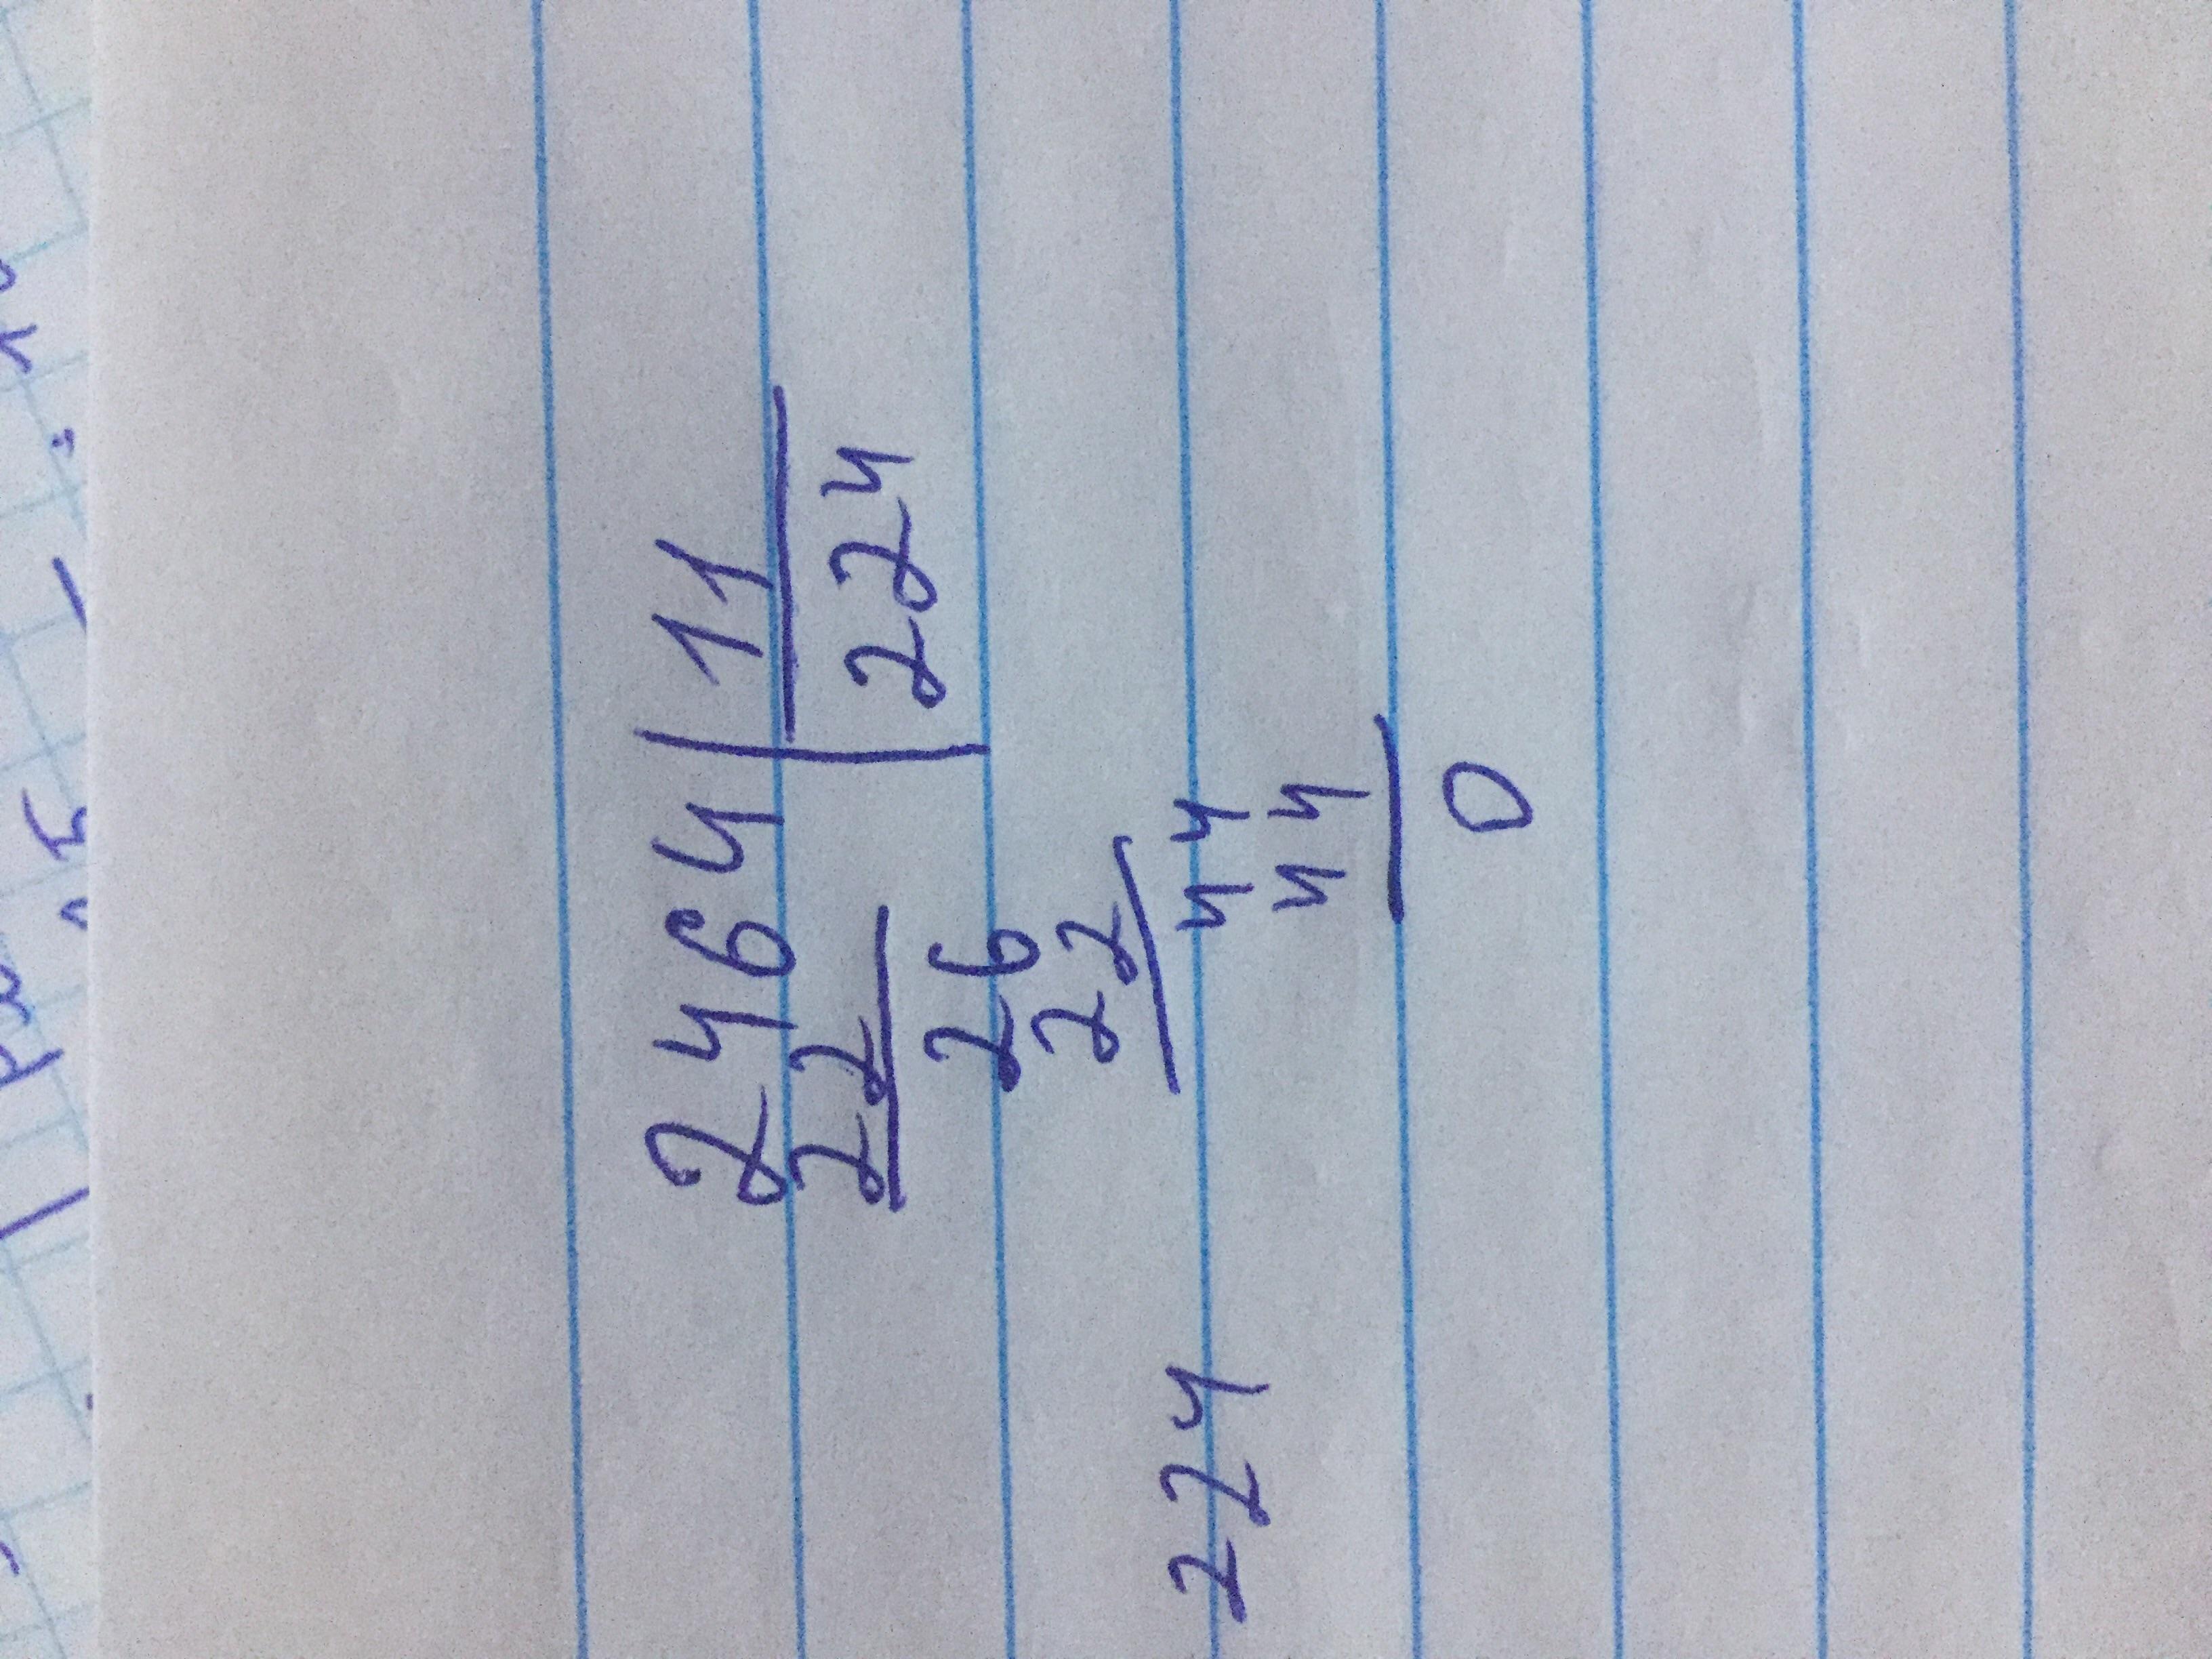 2464 | 11
22 | 224
26
22
44
44
0
224